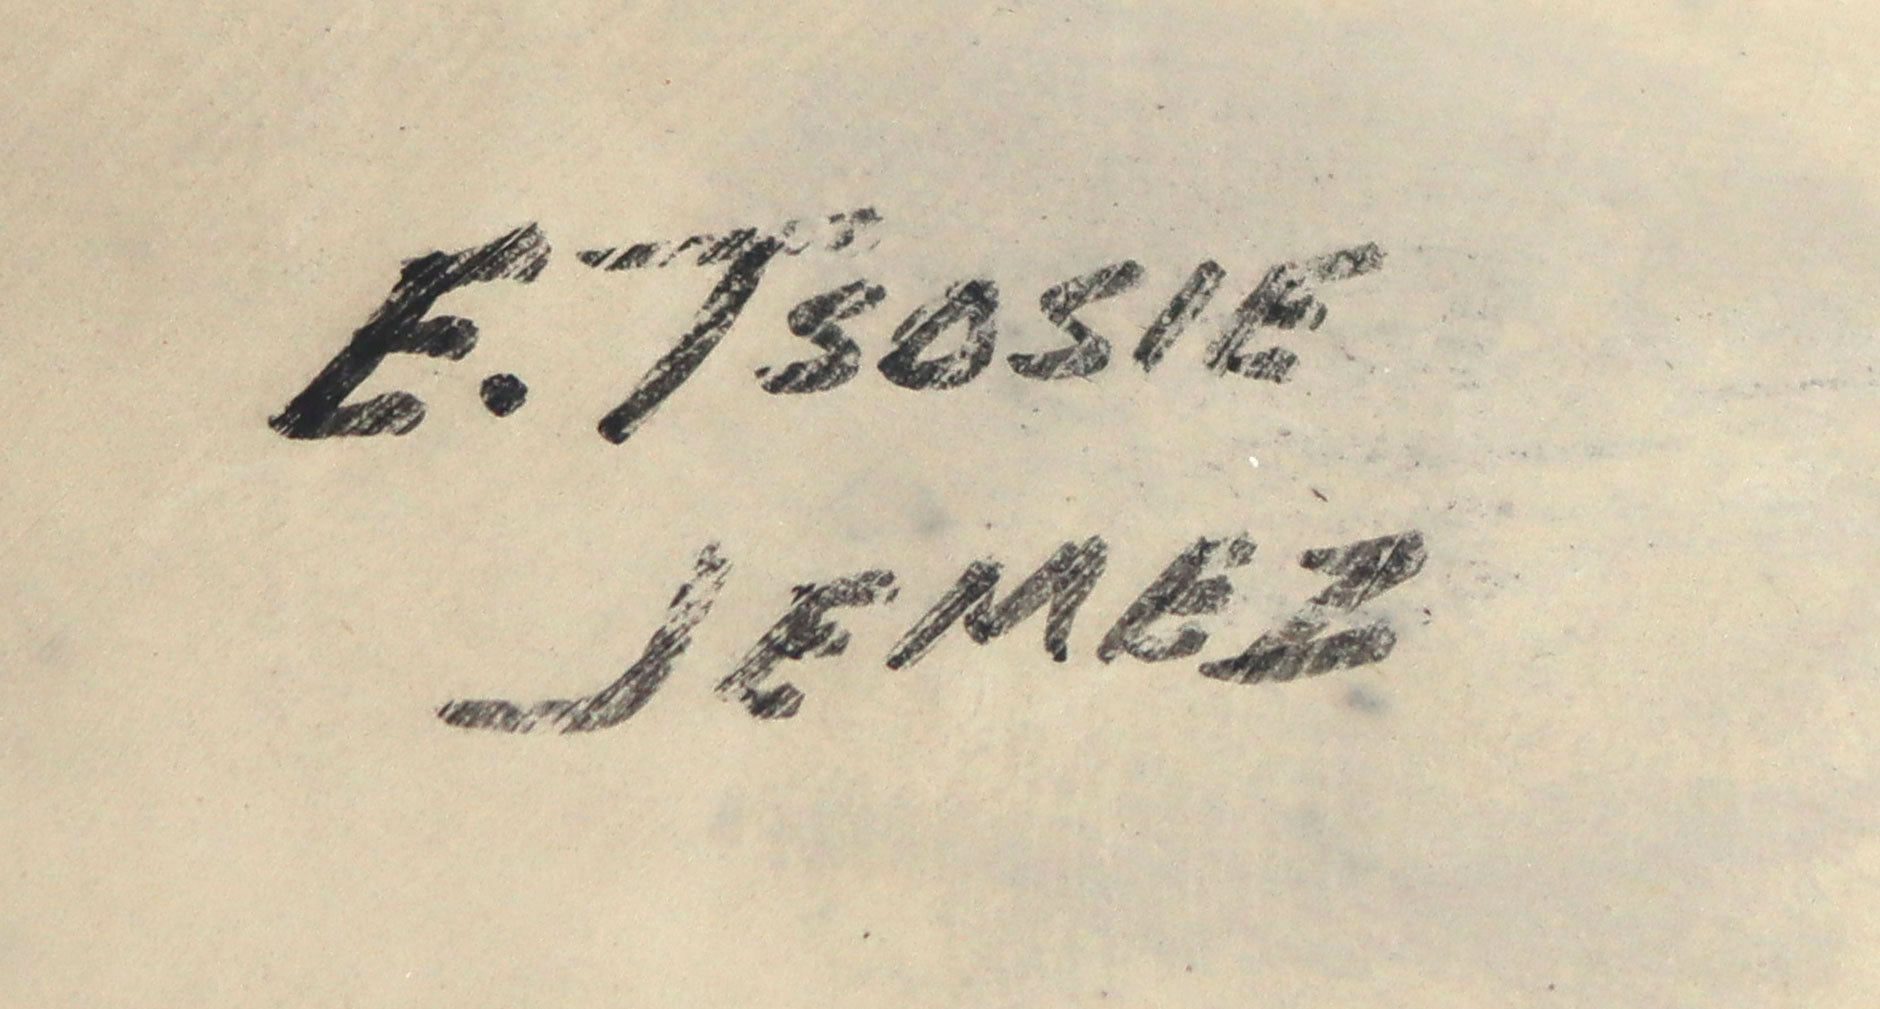 E. TSOSIE
JEMEZ